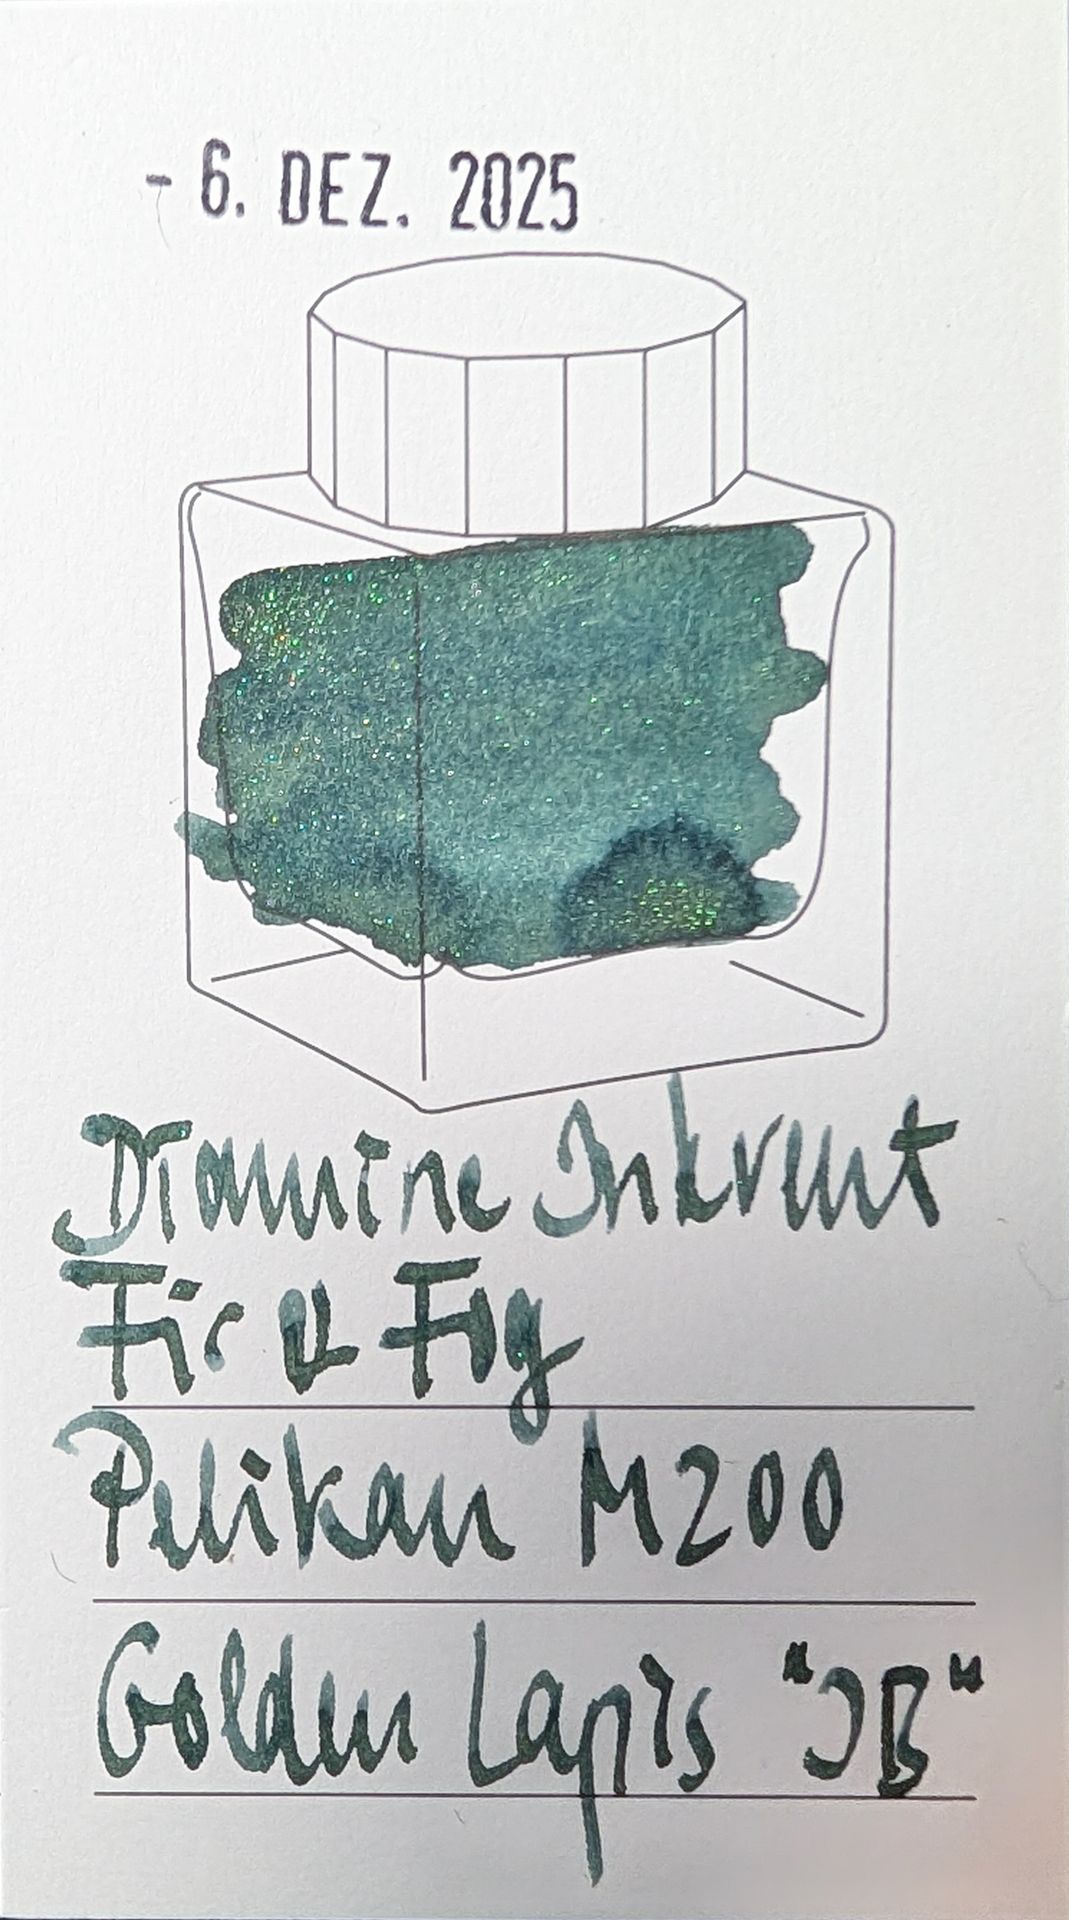 - 6. DEZ. 2025
Diamine Inkvent
Fir & Fog
Pelikan M200
Golden Lapis "IB"